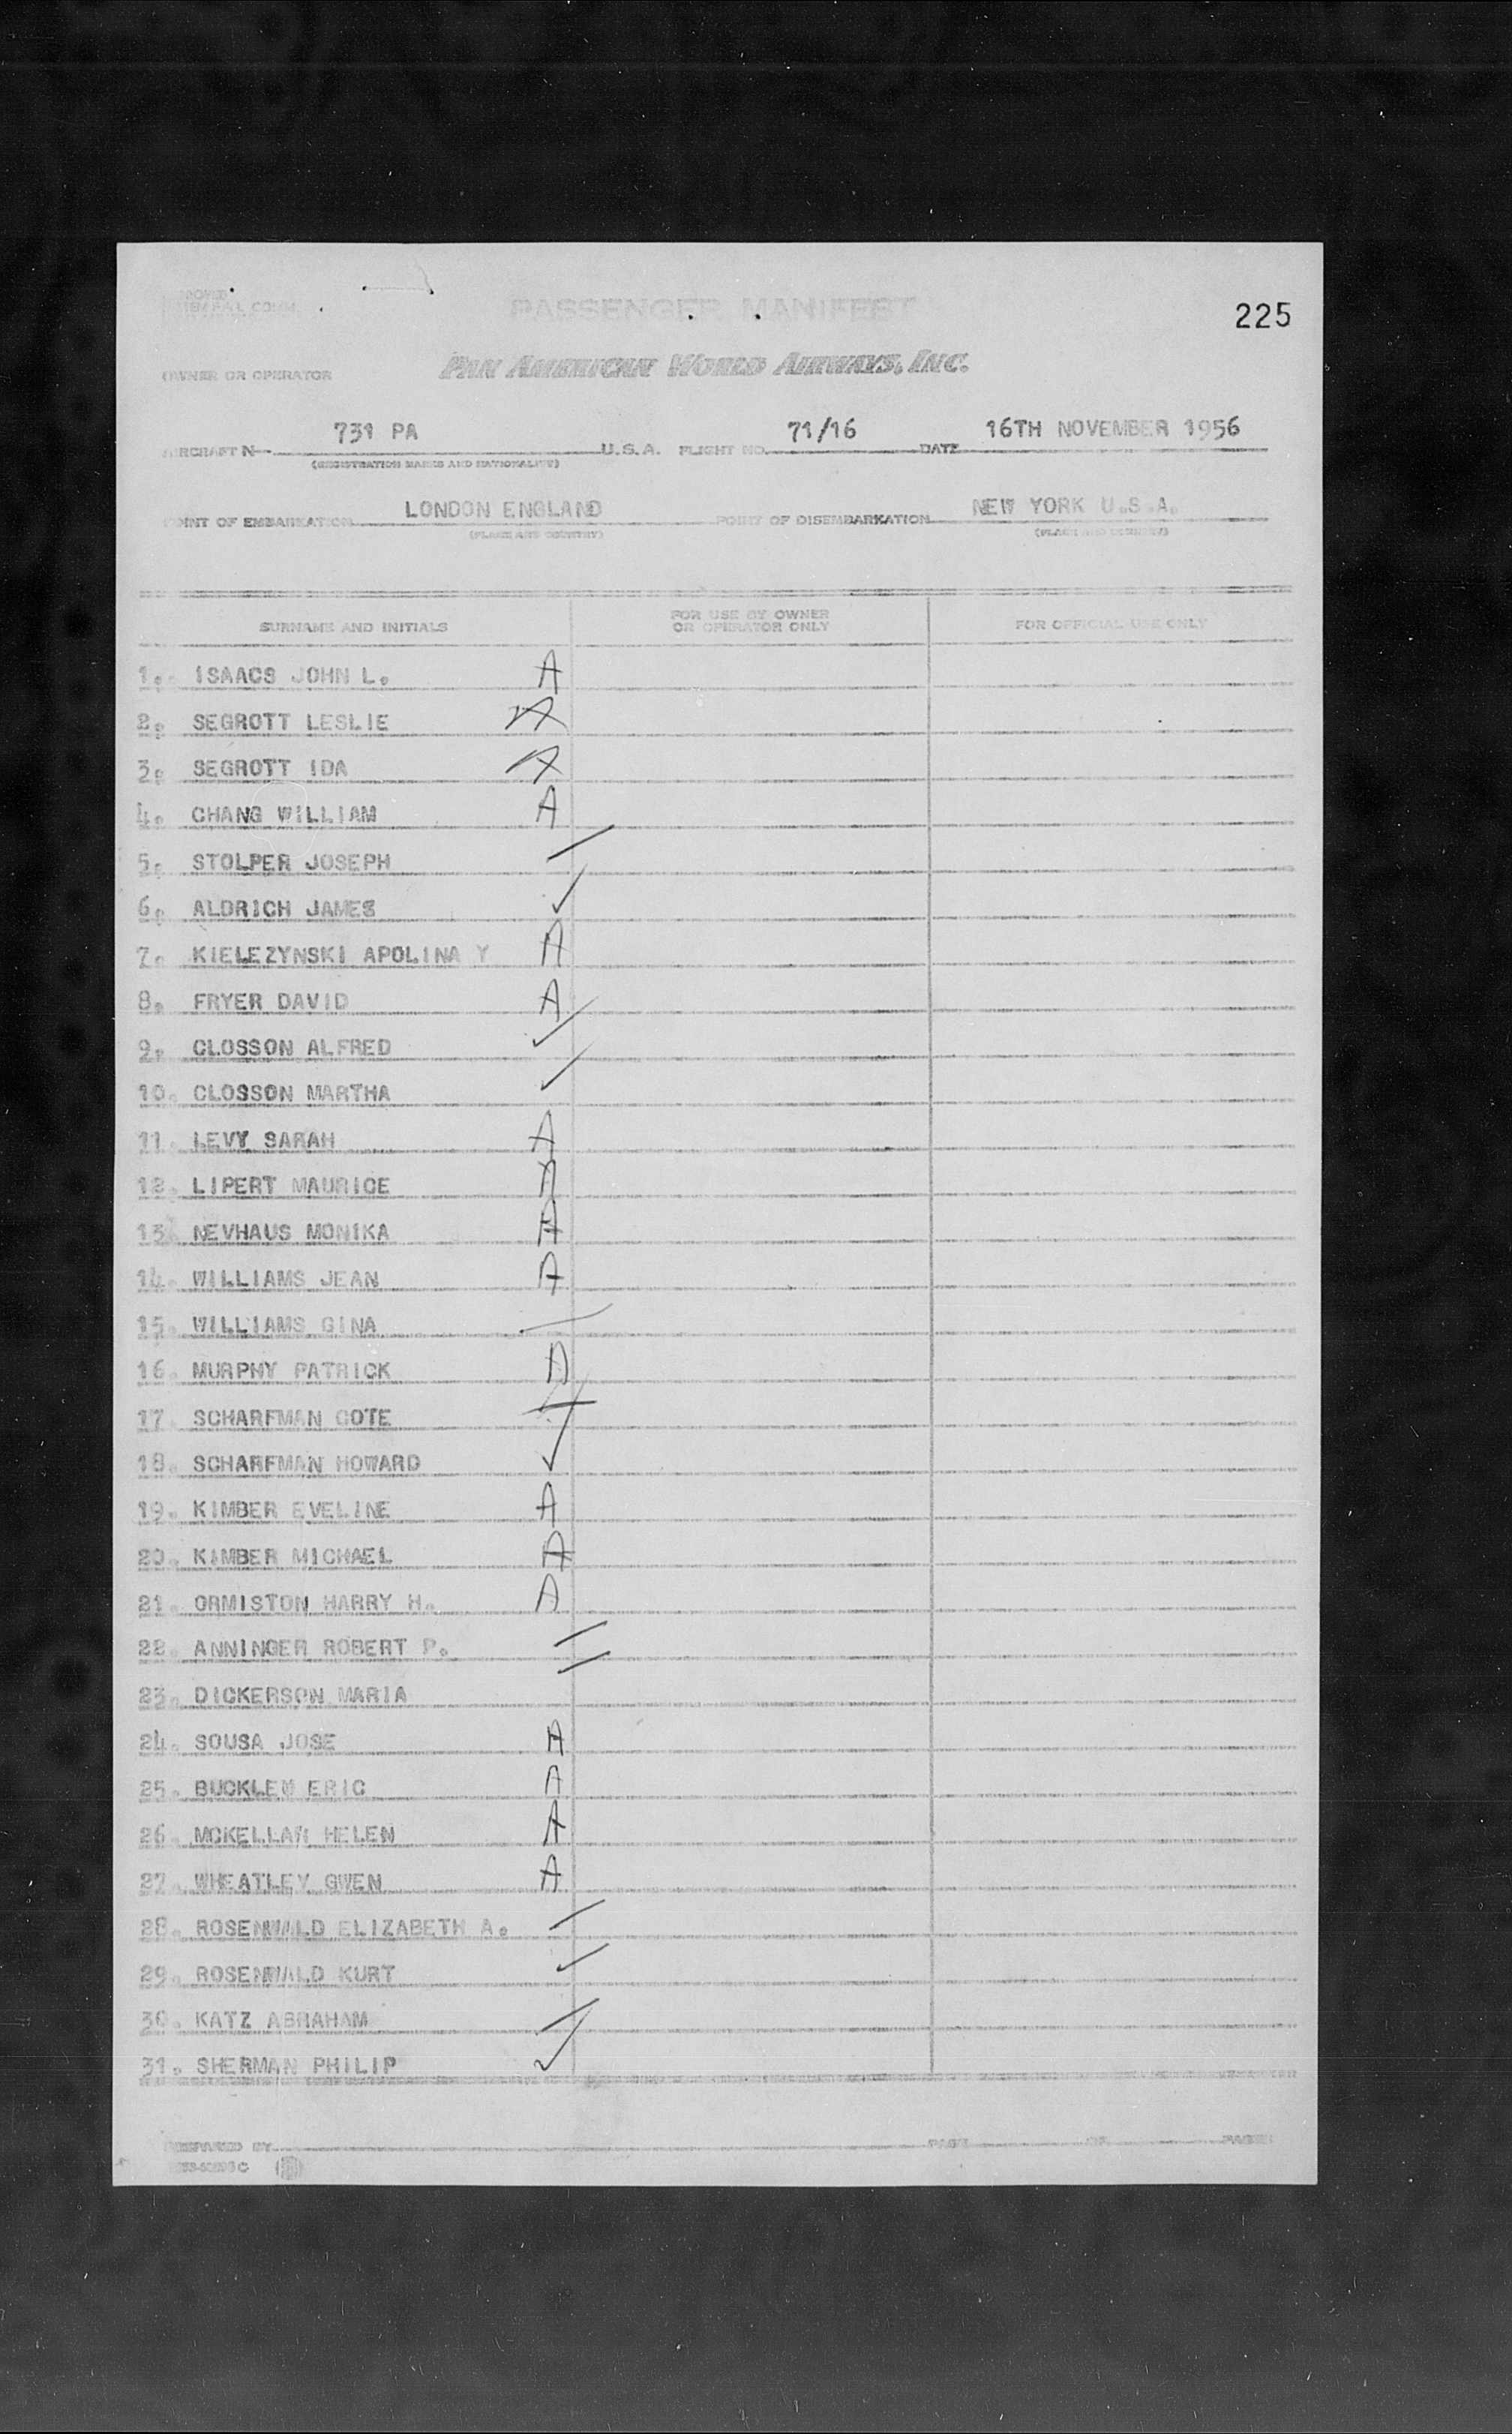 PASSENGER MANIFEST
225
OWNER OR OPERATOR PAN AMERICAN WORLD AIRWAYS, INC.
AIRCRAFT N 731 PA U.S.A. FLIGHT NO. 71/16 DATE 16TH NOVEMBER 1956
(REGISTRATION MARKS AND NATIONALITY)
POINT OF EMBARKATION LONDON ENGLAND POINT OF DISEMBARKATION NEW YORK U.S.A.
(PLACE AND COUNTRY) (PLACE AND COUNTRY)
SURNAME AND INITIALS FOR USE BY OWNER OR OPERATOR ONLY FOR OFFICIAL USE ONLY
1. ISAACS JOHN L. A
2. SEGROTT LESLIE A
3. SEGROTT IDA A
4. CHANG WILLIAM A
5. STOLPER JOSEPH
6. ALDRICH JAMES ✓
7. KIELEZYNSKI APOLINA Y A
8. FRYER DAVID A
9. CLOSSON ALFRED ✓
10. CLOSSON MARTHA ✓
11. LEVY SARAH A
12. LIPERT MAURICE A
13. NEVHAUS MONIKA A
14. WILLIAMS JEAN A
15. WILLIAMS GINA
16. MURPHY PATRICK A
17. SCHARFMAN COTE
18. SCHARFMAN HOWARD ✓
19. KIMBER EVELINE A
20. KIMBER MICHAEL A
21. ORMISTON HARRY H. A
22. ANNINGER ROBERT P.
23. DICKERSON MARIA
24. SOUSA JOSE A
25. BUCKLEW ERIC A
26. MCKELLAR HELEN A
27. WHEATLEY GWEN A
28. ROSENWALD ELIZABETH A.
29. ROSENWALD KURT ✓
30. KATZ ABRAHAM
31. SHERMAN PHILIP ✓
PREPARED BY PAGE OF PAGES